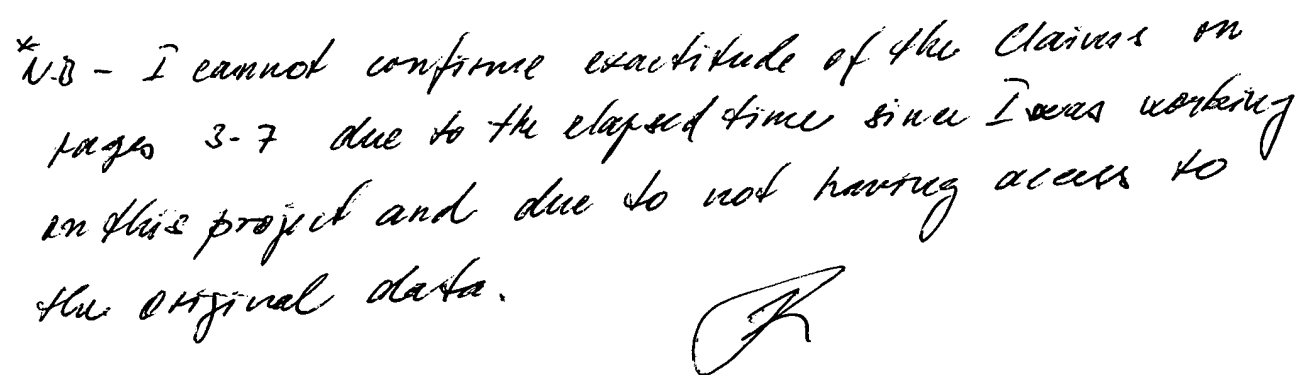 *N.B - I cannot confirme exactitude of the Claims on
pages 3-7 due to the elapsed time since I was working
on this project and due to not having access to
the original data.